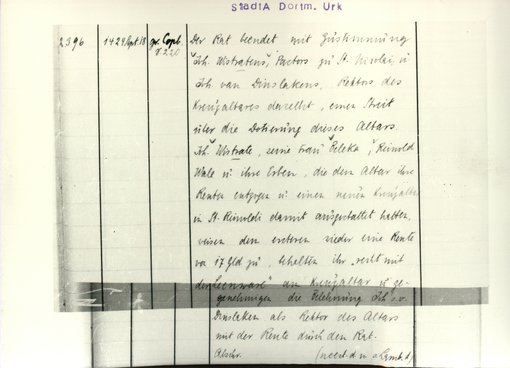 StadtA Dortm. Urk
2396 1424 Sept. 18 gr. Copb. f 220 Der Rat beendet mit Zustimmung
Joh. Wistratens, Pastors zu St. Nicolai, u
Joh van Dinslakens, Rektors des
Kreuzaltares daselbst, einen Streit
über die Dotierung dieses Altars.
Joh. Wistrate, seine Frau Beleke, Reinold
Wale u ihre Erben, die dem Altar ihre
Renten entzogen u einen neuen Kreuzaltar
in St. Reinoldi damit ausgestattet hatten,
weisen dem ersteren wieder eine Rente
von 17 Gld zu, behalten ihr "recht mit
der" am Kreuzaltar u ge-
genehmigen die Belehnung Joh's v.
Dinslaken als Rektor des Altars
mit der Rente durch den Rat.
Abschr.